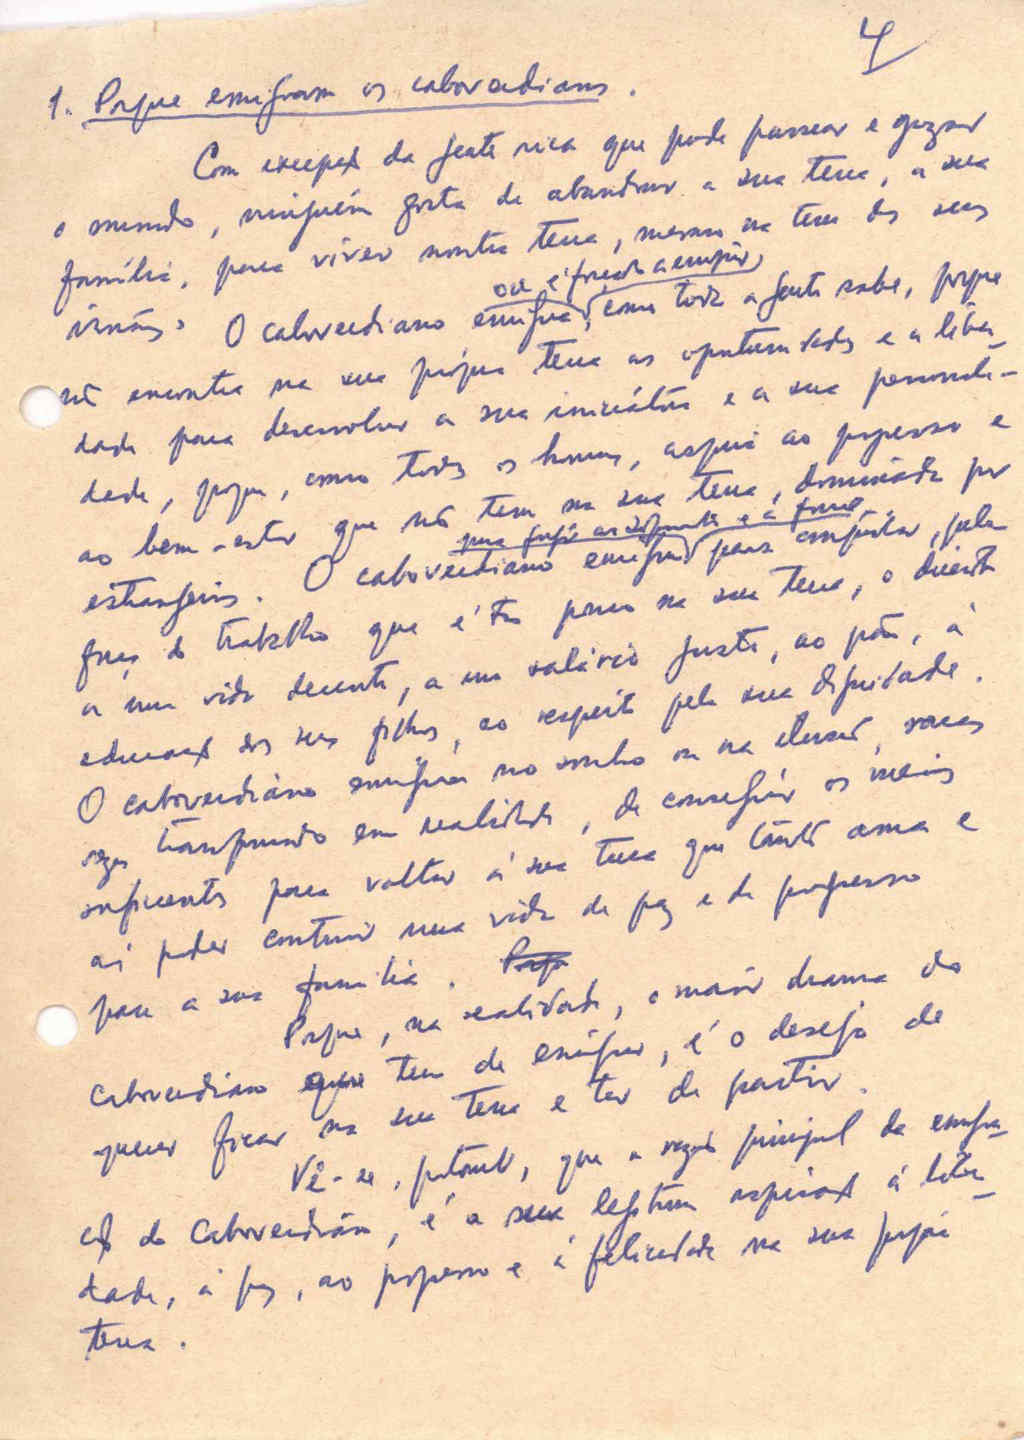 4
1. Porque emigram os caboverdianos.
Com excepção da gente rica que pode passear e gozar
o mundo, ninguém gosta de abandonar a sua terra, a sua
família, para viver noutra terra, mesmo na terra dos seus
irmãos. O caboverdiano emigra, ou é forçado a emigrar, como toda a gente sabe, porque
não encontra na sua própria terra as oportunidades e a liber-
dade para desenvolver a sua iniciativa e a sua personali-
dade, porque, como todos os homens, aspira ao progresso e
ao bem-estar que não tem na sua terra, dominada por
estrangeiros. O caboverdiano emigra para fugir ao sofrimento e à fome, para conquistar, pela
força do trabalho que é tão pouco na sua terra, o direito
a uma vida decente, a um salário justo, ao pão, à
educação dos seus filhos, ao respeito pela sua dignidade.
O caboverdiano emigra no sonho ou na ilusão, raras
vezes transformado em realidade, de conseguir os meios
suficientes para voltar à sua terra que tanto ama e
aí poder construir uma vida de paz e de progresso
para a sua família. Porque
Porque, na realidade, o maior drama do
caboverdiano que tem de emigrar, é o desejo de
querer ficar na sua terra e ter de partir.
Vê-se, portanto, que a razão principal da emigra-
ção do Caboverdiano, é a sua legítima aspiração à liber-
dade, à paz, ao progresso e à felicidade na sua própria
terra.